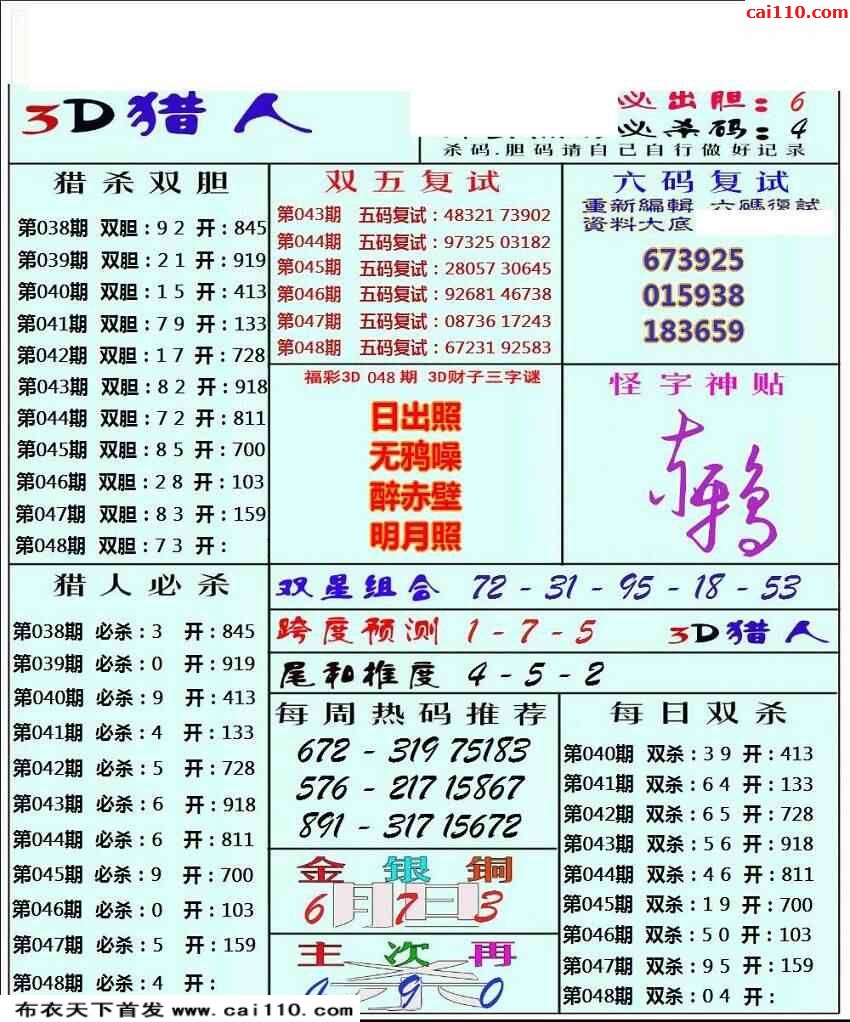 cai110.com
3D猎人
必出胆：6
必杀码：4
杀码.胆码请自己自行做好记录
猎杀双胆
第038期 双胆：92 开：845
第039期 双胆：21 开：919
第040期 双胆：15 开：413
第041期 双胆：79 开：133
第042期 双胆：17 开：728
第043期 双胆：82 开：918
第044期 双胆：72 开：811
第045期 双胆：85 开：700
第046期 双胆：28 开：103
第047期 双胆：83 开：159
第048期 双胆：73 开：
双五复试
第043期 五码复试：48321 73902
第044期 五码复试：97325 03182
第045期 五码复试：28057 30645
第046期 五码复试：92681 46738
第047期 五码复试：08736 17243
第048期 五码复试：67231 92583
六码复试
重新編輯 六碼復試
資料大底
673925
015938
183659
福彩3D 048期 3D财子三字谜
日出照
无鸦噪
醉赤壁
明月照
怪字神贴
猎人必杀
第038期 必杀：3 开：845
第039期 必杀：0 开：919
第040期 必杀：9 开：413
第041期 必杀：4 开：133
第042期 必杀：5 开：728
第043期 必杀：6 开：918
第044期 必杀：6 开：811
第045期 必杀：9 开：700
第046期 必杀：0 开：103
第047期 必杀：5 开：159
第048期 必杀：4 开：
双星组合 72-31-95-18-53
跨度预测 1-7-5 3D猎人
尾和推度 4-5-2
每周热码推荐
672-319 75183
576-217 15867
891-317 15672
金银铜
6 7 3
主次再
9 0
每日双杀
第040期 双杀：39 开：413
第041期 双杀：64 开：133
第042期 双杀：65 开：728
第043期 双杀：56 开：918
第044期 双杀：46 开：811
第045期 双杀：19 开：700
第046期 双杀：50 开：103
第047期 双杀：95 开：159
第048期 双杀：04 开：
布衣天下首发 www.cai110.com